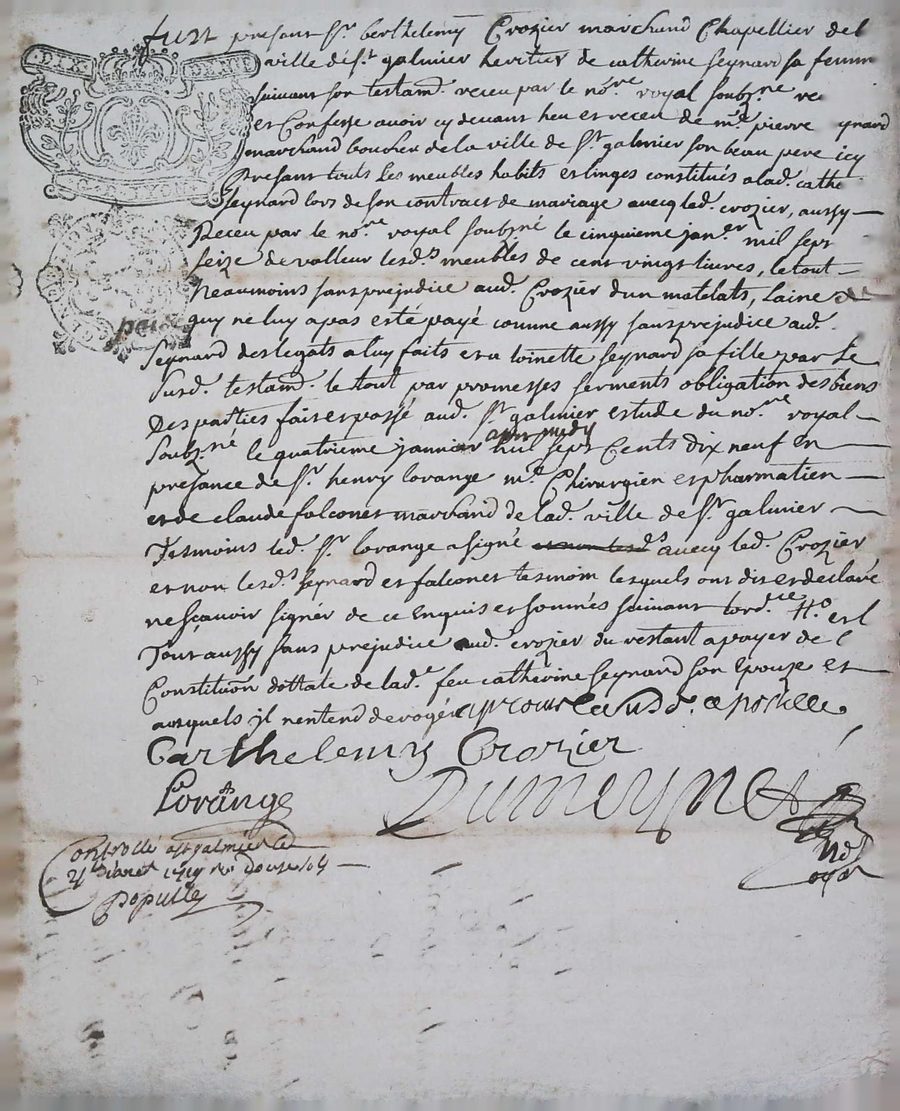 DIX DENIE
G. D. LYON
fust présant Sr. berthelemy Crozier marchand Chapellier de l
ville de St. galmier heritier de catherine seynard sa femme
suivant son testamt. receu par le nore. royal soubzne
et Confesse avoir cy devant heu et receu de me. pierre
marchand boucher de la ville de St. galmier son beau pere icy
Présant touts les meubles habits et linges constitués a lad. cathe
seynard lors de son contract de mariage avecq led. crozier, aussy
Receu par le nore. royal soubzné le cinquieme janer. mil sept
seize de valleur lesds. meubles de cent vingt livres, le tout
Neaumoins sans prejudice aud. Crozier dun matelats, laine
quy ne luy a pas esté payé comme aussy sans prejudice aud.
Seynard des legats a luy faits et a toinette seynard sa fille par le
susd. testamt. le tout par promesses serments obligation des biens
des parties fait et passé aud. St galmier estude du nore. royal
soubzné le quatrieme janvier apres midy mil sept Cents dix neuf en
présance de Sr. henry lorange me. Chirurgien et pharmatien
et de claude falconet marchand de lad. ville de St. galmier
Tesmoins led. Sr. lorange a signé avecq led. Crozier
et non lesds. seynard et falconet tesmoin lesquels ont dit et declaré
ne sçavoir signér de ce enquis et sommés suivant lordce. Ho est
Tout aussy sans prejudice aud. crozier du restant a payer de l
Constitution dottale de lad. feu catherine seynard son Epouze et
ausquels il n'entend derogér approuve la susd. apostille
Barthelemy Crozier
Lorange
Dumeynet
Nore
royal
Controllé a St galmier le
janer 1719 Rs douze sols